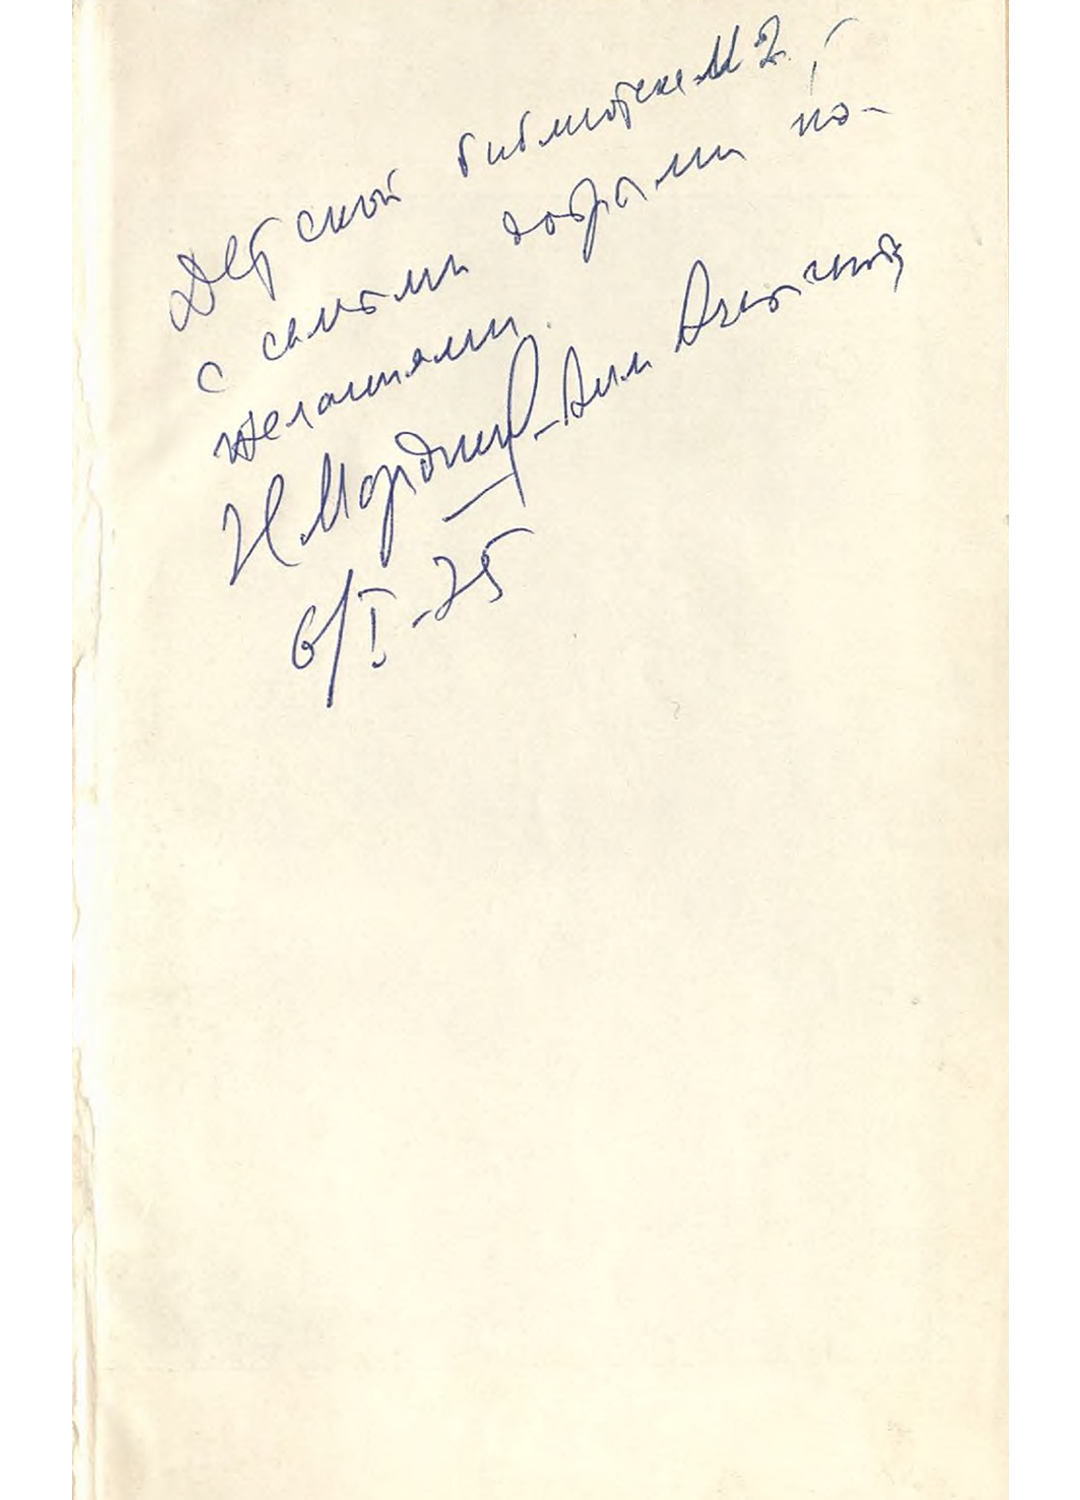 Детской библиотеке № 2, –
с самыми добрыми по-
желаниями.
Н Мордин – Вам
6/I–75